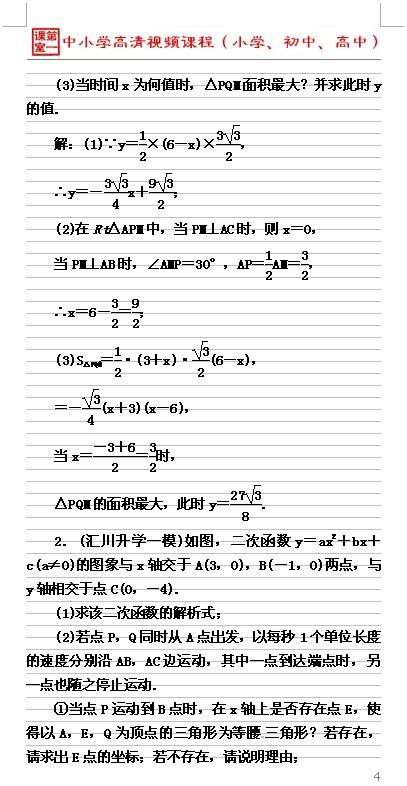 课第
堂一
中小学高清视频课程（小学、初中、高中）
(3)当时间x为何值时，△PQM面积最大？并求此时y
的值．
解：(1)∵y=1/2×(6-x)×3√3/2，
∴y=-3√3/4x+9√3/2；
(2)在Rt△APM中，当PM⊥AC时，则x=0，
当PM⊥AB时，∠AMP=30°，AP=1/2AM=3/2，
∴x=6-3/2=9/2；
(3)S△PQM=1/2·(3+x)·√3/2(6-x)，
=-√3/4(x+3)(x-6)，
当x=-3+6/2=3/2时，
△PQM的面积最大，此时y=27√3/8．
2．(汇川升学一模)如图，二次函数y=ax²+bx+
c(a≠0)的图象与x轴交于A(3，0)，B(-1，0)两点，与
y轴相交于点C(0，-4)．
(1)求该二次函数的解析式；
(2)若点P，Q同时从A点出发，以每秒1个单位长度
的速度分别沿AB，AC边运动，其中一点到达端点时，另
一点也随之停止运动．
①当点P运动到B点时，在x轴上是否存在点E，使
得以A，E，Q为顶点的三角形为等腰三角形？若存在，
请求出E点的坐标；若不存在，请说明理由；
4